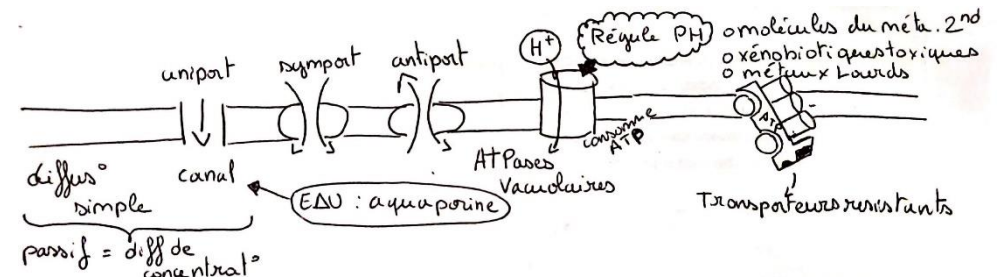 uniport
symport
antiport
H⁺
Régule PH
o molécules du méta. 2nd
o xénobiotiques toxiques
o métaux Lourds
diffus°
simple
canal
EAU : aquaporine
ATPases
Vacuolaires
consomme
ATP
ATP
Transporteurs resistants
passif = diff de
concentrat°